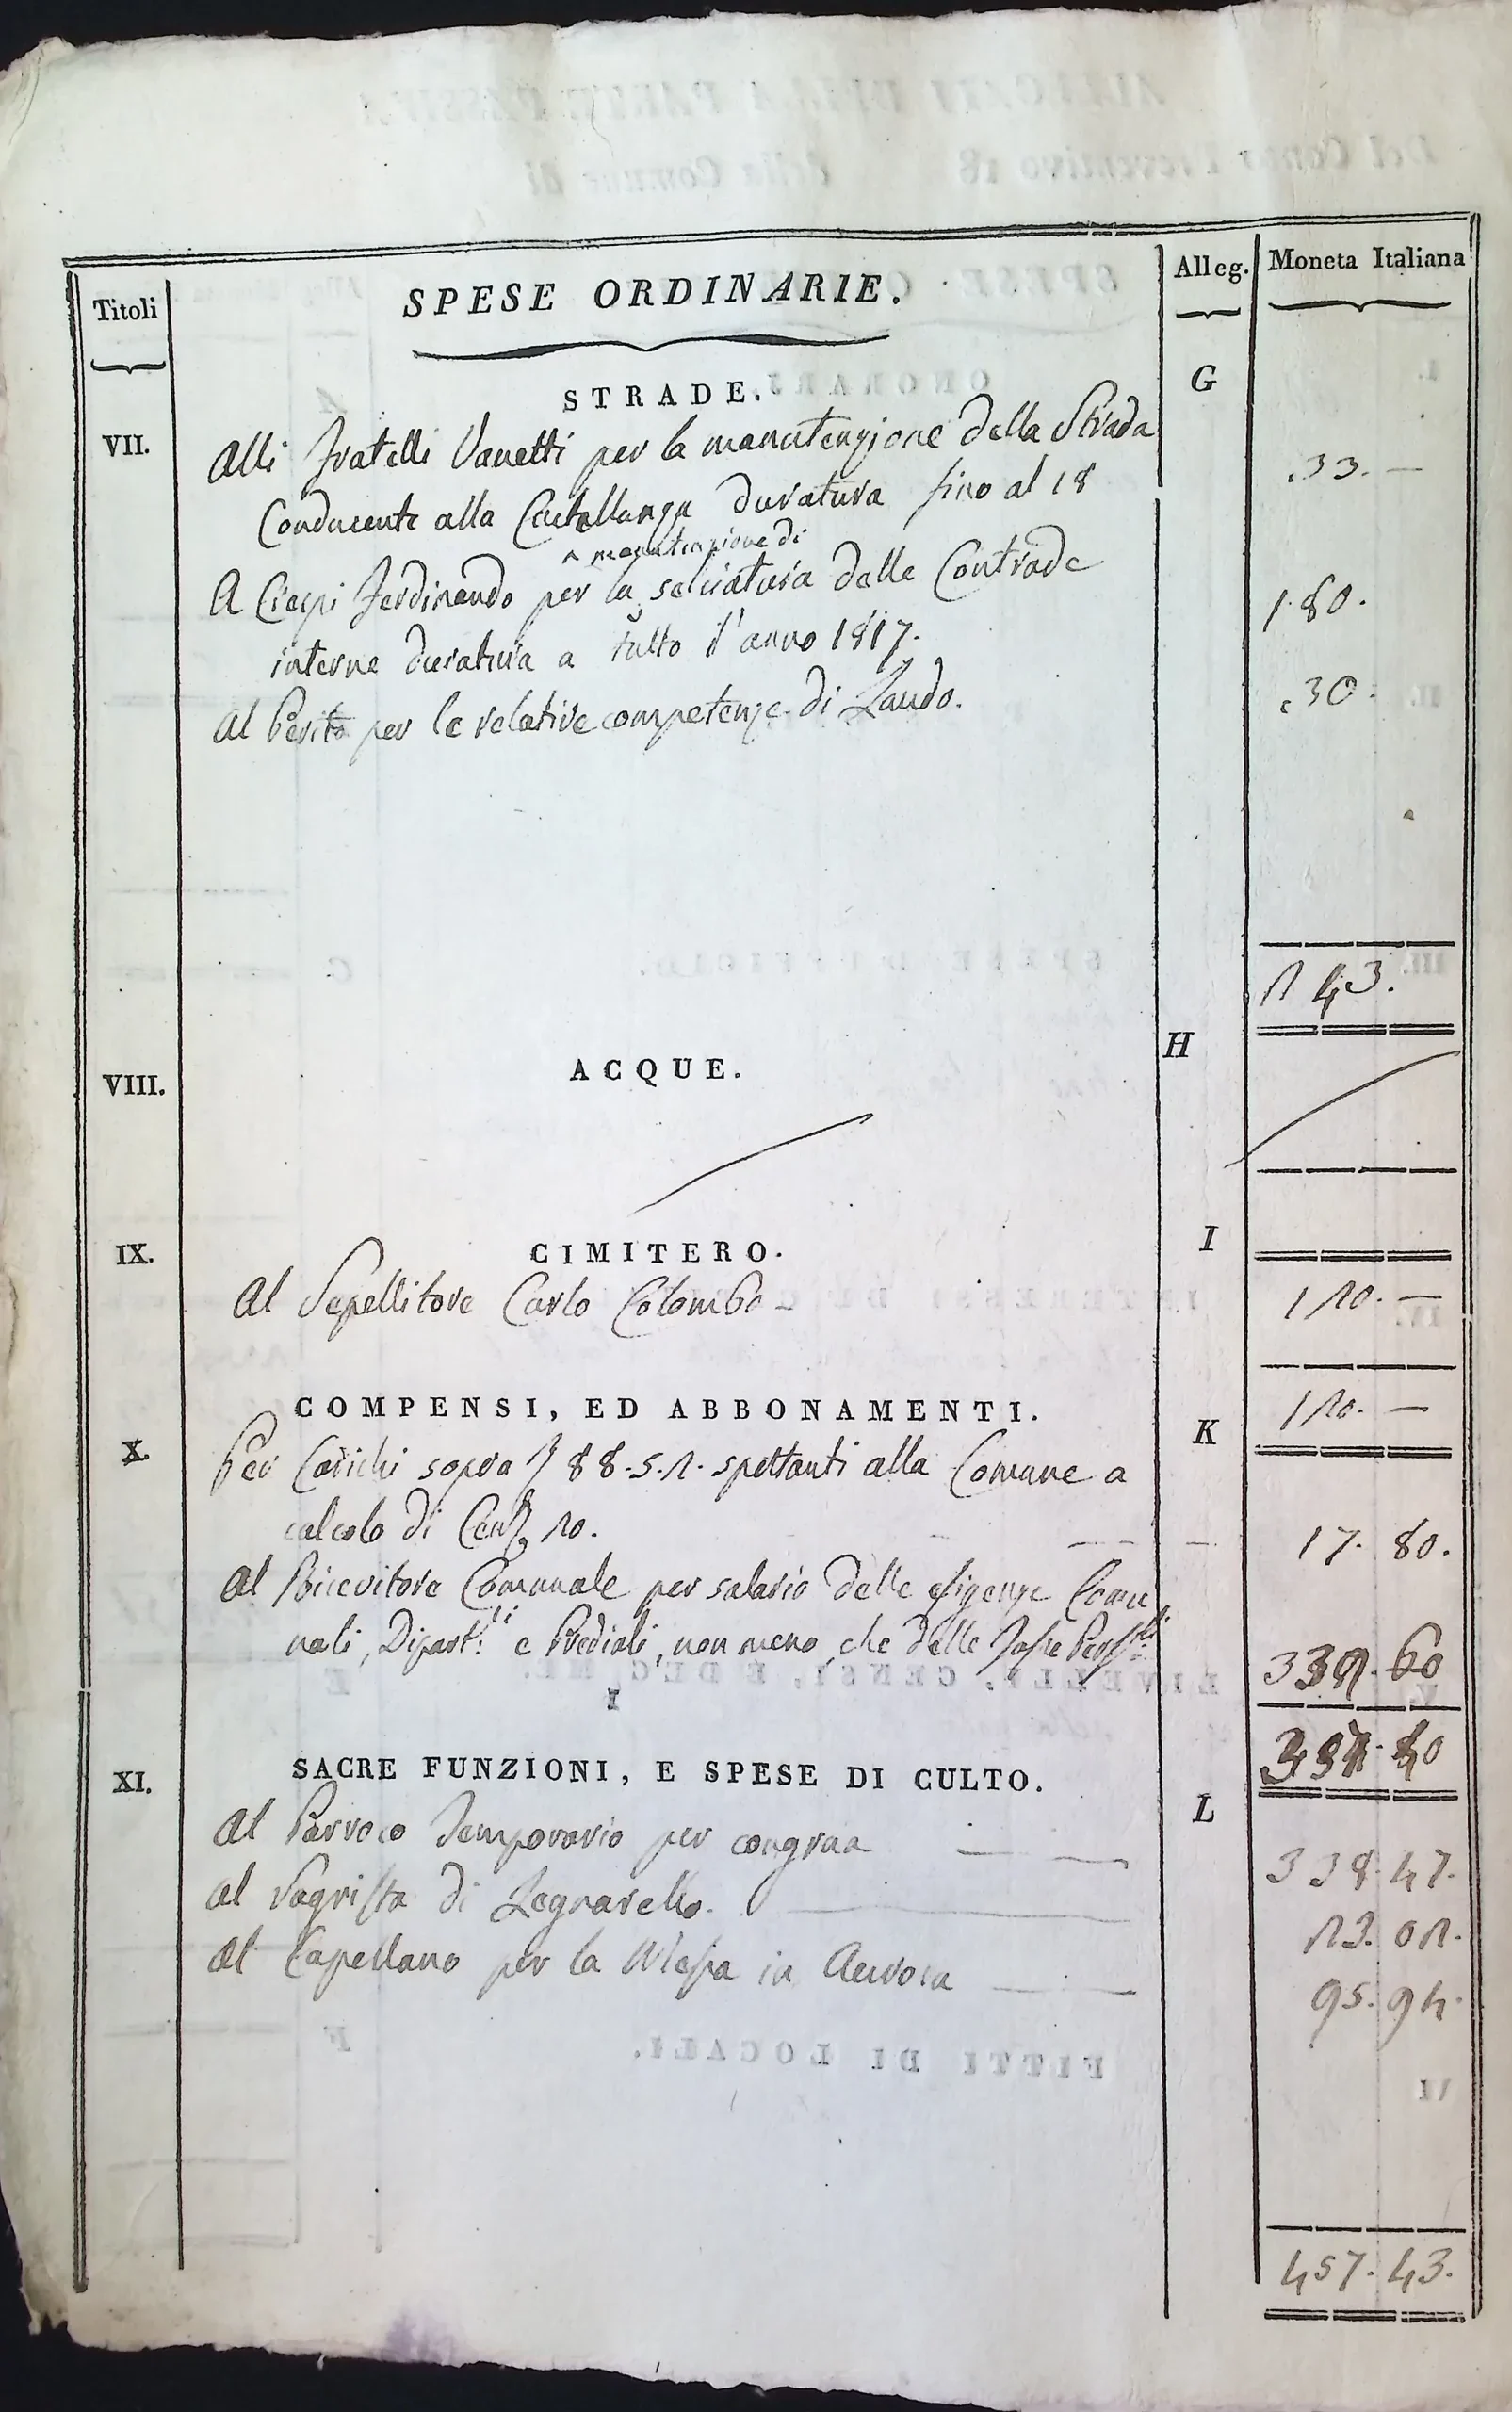 Titoli
SPESE ORDINARIE.
Alleg.
Moneta Italiana
STRADE.
G
VII.
Alli Fratelli Vanetti per la manutenzione della Strada
33. —
Conducente alla Castellanza duratura fino al 18
manutenzione di
A Crespi Ferdinando per la selciatura delle Contrade
180.
interne duratura a tutto l'anno 1817.
Al Perito per le relative competenze di Laudo.
30.
243.
VIII.
ACQUE.
H
IX.
CIMITERO.
I
Al Sepellitore Carlo Colombo
120. —
120. —
X.
COMPENSI, ED ABBONAMENTI.
K
Per Carichi sopra 88.5.2. spettanti alla Comune a
calcolo di 20.
17. 80.
Al Ricevitore Comunale per salario delle esigenze Comu
nali, Dipart.li e Prediali, non meno che delle Tasse
60
I
XI.
SACRE FUNZIONI, E SPESE DI CULTO.
L
Al Parroco Temporario per congrua
338. 47.
Al Sagrista di Legnarello.
23. 02.
Al Capellano per la Messa in Aurora
95. 94.
457. 43.